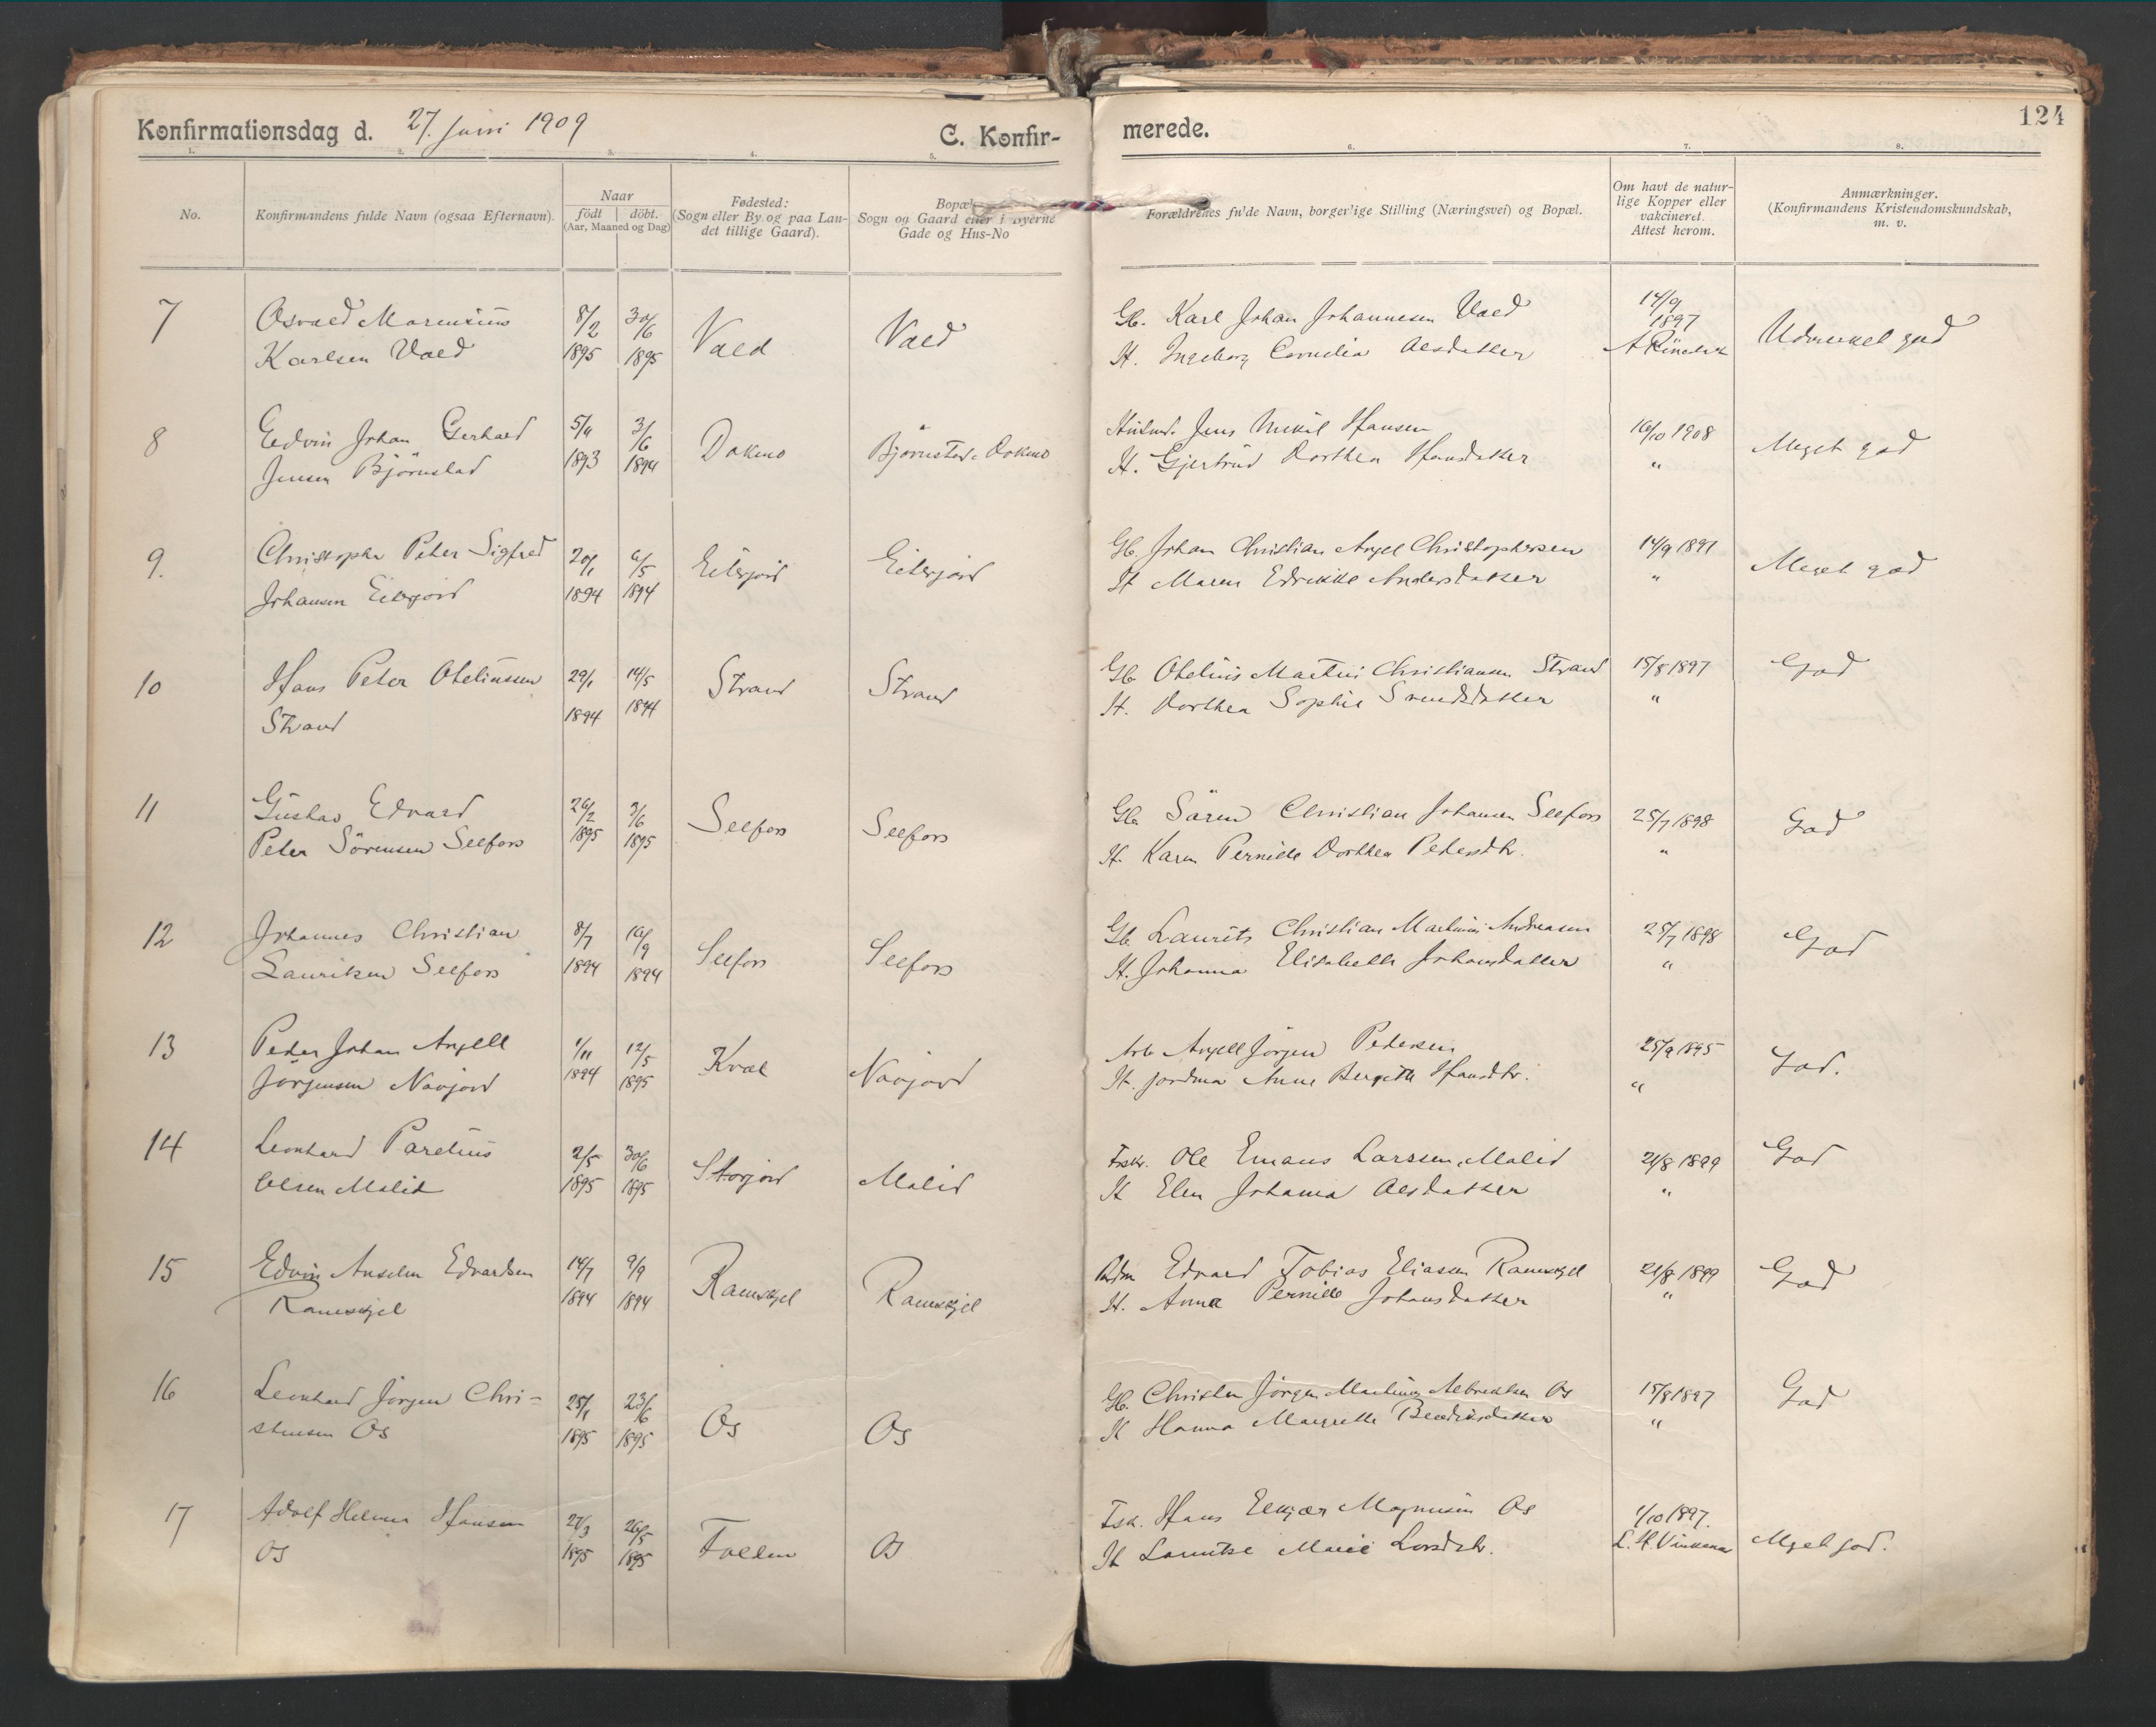 Konfirmationsdag d. 27. juni 1909
C. Konfir-
merede.
124
1. 2. 3. 4. 5. 6. 7. 8.
No.
Konfirmandens fulde Navn (ogsaa Efternavn).
Naar
födt döbt.
(Aar, Maaned og Dag)
Fødested:
(Sogn eller By og paa Lan-
det tillige Gaard).
Bopæl
Sogn og Gaard eller i Byerne
Gade og Hus-No
Forældrenes fulde Navn, borgerlige Stilling (Næringsvei) og Bopæl.
Om havt de natur-
lige Kopper eller
vakcineret.
Attest herom.
Anmærkninger.
(Konfirmandens Kristendomskundskab,
m. v.
7 Osvald Marensius 8/2 30/6 Vald Vald Gb. Karl Johan Johannesen Vald 14/9 1897 Udmerket god
Karlsen Vald 1895 1895 H. Ingeborg Cornelia Olsdatter
8 Edvin Johan Gerhard 5/11 3/6 Dokmo Björnstad Dokmo Husmd. Jens Mikal Hansen 16/10 1908 Meget god
Jensen Björnstad 1893 1894 H. Gjertrud Dorthea Hansdatter "
9. Christopher Peter Sigfred 20/1 6/5 Eiterjord Eiterjord Gb. Johan Christian Angel Christophersen 14/9 1897 Meget god
Johansen Eiterjord 1894 1894 H Maren Edrikke Andersdatter "
10 Hans Peter Oteliussen 29/1 14/5 Strand Strand Gb Otelius Martin Christiansen Strand 15/8 1897 God
Strand 1894 1894 H. Dorthea Sophie Svendsdatter "
11 Gustav Edvard 26/2 3/6 Selfors Selfors Gb Sören Christian Johansen Selfors 25/7 1898 God
Peter Sörensen Selfors 1895 1895 H. Karen Pernille Dorthea Pedersdtr. "
12 Johannes Christian 8/7 16/9 Selfors Selfors Gb Laurits Christian Martinus Andreasen 25/7 1898 God
Lauritsen Selfors 1894 1894 H. Johanna Elisabeth Johansdatter "
13 Peder Johan Angell 1/11 12/5 Kval Navjord Arb Angell Jörgen Pedersen 25/9 1895 God.
Jörgensen Navjord 1894 1895 H. Jordmo Anne Bergitte Hansdtr. "
14 Leonhard Parelius 2/5 30/6 Storjord Malid Fisk. Ole Emaus Larssen, Malid 21/8 1899 God
Olsen Malid 1895 1895 H Elen Johanna Olsdatter "
15 Edvin Anselm Edvardsen 14/7 9/9 Ramskjel Ramskjel Edvard Tobias Eliasen Ramskjel 21/8 1899 God
Ramskjel 1894 1894 H. Anna Pernille Johansdatter "
16 Leonhard Jörgen Chri- 25/1 23/6 Os Os Gb. Christen Jörgen Martinus Albrektsen Os 15/8 1897 God
stensen Os 1895 1895 H Hanna Margrethe Bendiksdatter "
17 Adolf Helmer Hansen 27/3 26/5 Follen Os Fisk. Hans Elkjær Magnusen Os 1/10 1897. Meget god.
Os 1895 1895 H Lauritse Marie Larsdtr.